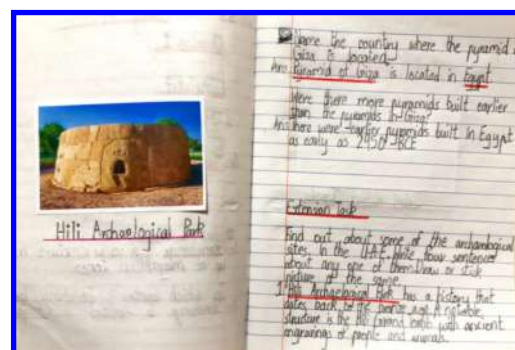 Hili Archaeological Park
Name the country where the pyramid of
Giza is located
Ans Pyramid of Giza is located in Egypt.
Were there more pyramids built earlier
than the pyramids in Giza?
Ans here were earlier pyramids built in Egypt
as early as 2950 BCE
Extension Task
Find out about some of the archaeological
sites in the U.A.E. Write four sentences
about any one of them. Draw or stick
picture of the same.
1 Hili Archaeological Park has a history that
dates back to the bronze age. A notable
structure is the Hili Grand tomb with ancient
engravings of people and animals.